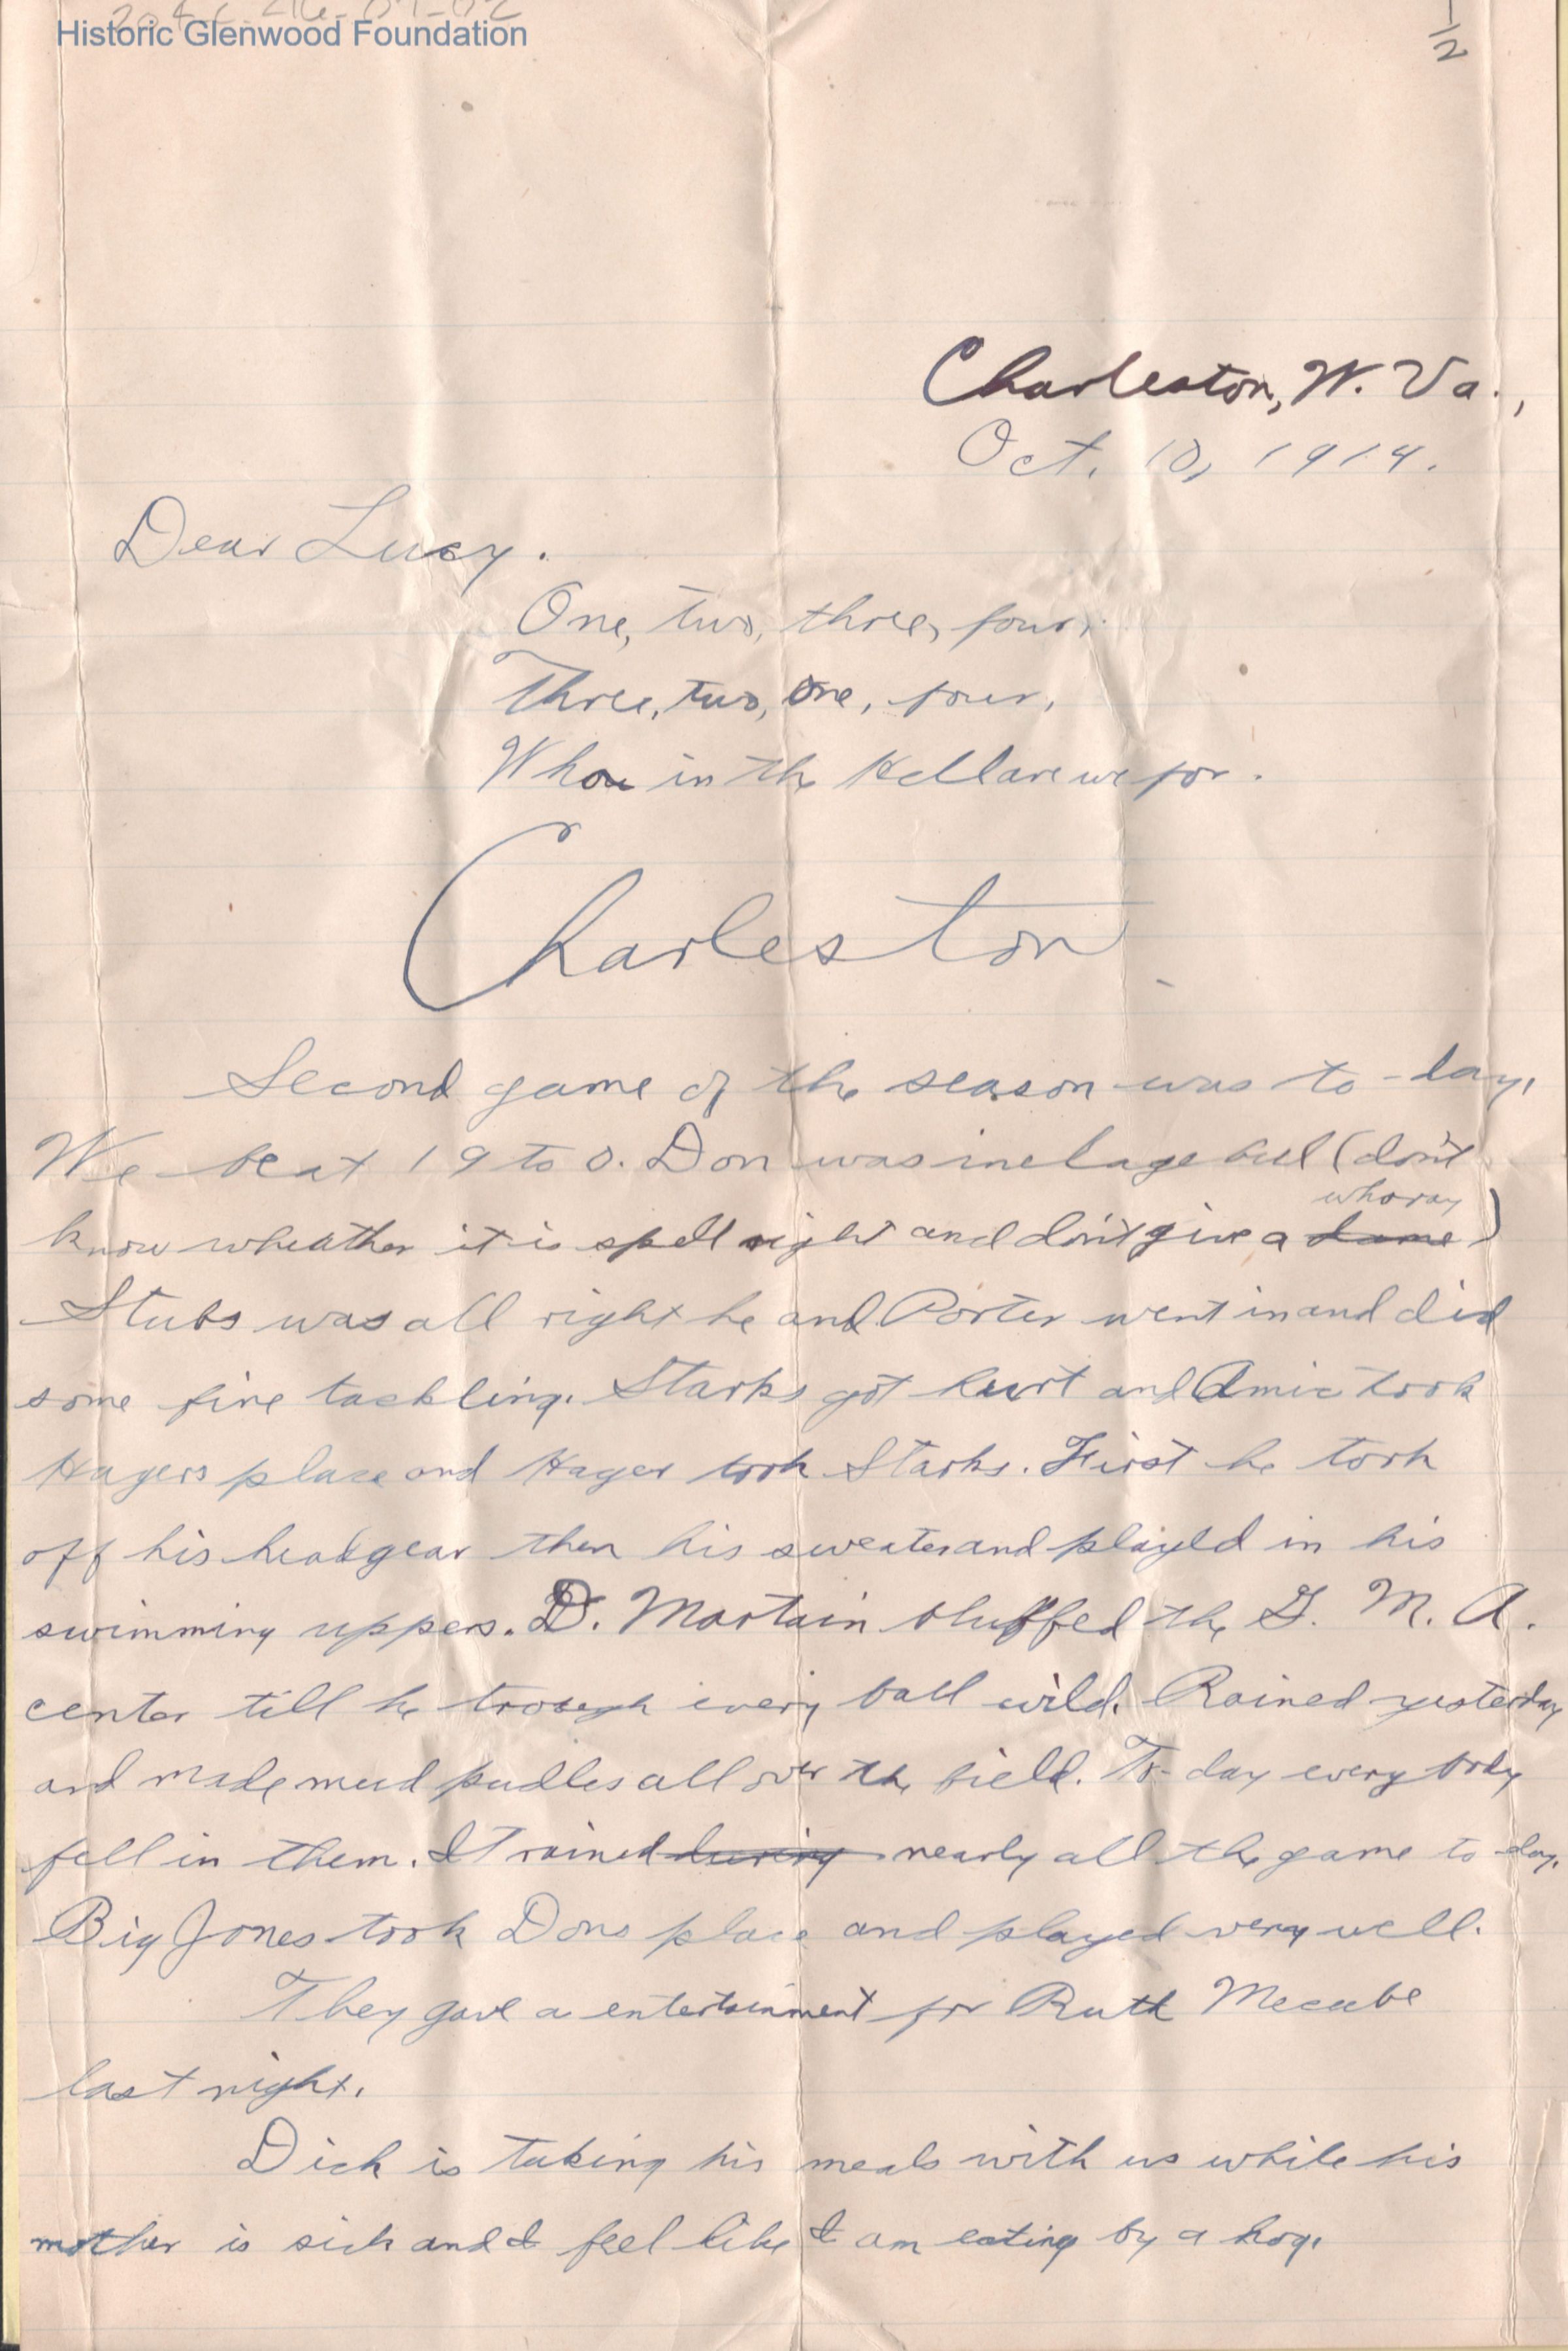 Historic Glenwood Foundation
1/2
Charleston, W. Va.,
Oct. 10, 1914.
Dear Lucy.
One, two, three, four,
Three, two, one, four,
Who in the Hell are we for.
Charleston
Second game of the season was to-day,
We beat 19 to 0. Don was inelagebul (don't
know wheather it is spell right and don't give a dame whoray)
Stubs was all right he and Porter went in and did
some fine tackling. Starks got hurt and Amic took
Hagers place and Hager took Starks. First he took
off his headgear then his sweater and played in his
swimming uppers. D. Martain bluffed the G. M. A.
center till he every ball wild. Rained yesterday
and made mud pudles all over the field. To-day every body
fell in them. It rained during nearly all the game to-day.
Big Jones took Dons place and played very well.
They gave a entertainment for Ruth Mccabe
last night.
Dick is taking his meals with us while his
mother is sick and I feel like I am eating by a hog.